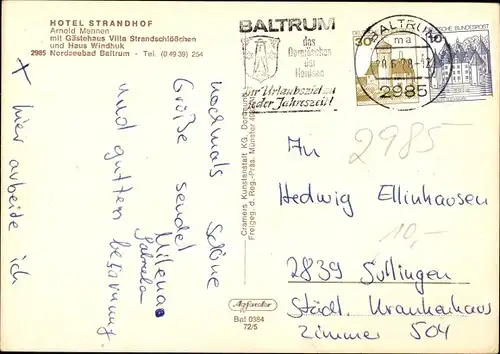 HOTEL STRANDHOF
Arnold Mennen
mit Gästehaus Villa Strandschlößchen
und Haus Windhuk
2985 Nordseebad Baltrum - Tel. (0 49 39) 254
x hier arbeite ich
nochmals schöne
Grüße sendet
Milena
Gabriela
und guten besserung.
Cramers Kunstanstalt KG, Dortmund
Freigeg. d. Reg.-Präs. Münster
BALTRUM
das
Dornröschen
der
Nordsee
Ihr Urlaubsziel zu
jeder Jahreszeit!
BALTRUM
ma
2985
DEUTSCHE BUNDESPOST
2985
An
Hedwig Ellinghausen
10,-
2839 Sullingen
Städl. Krankenhaus
Zimmer 504
Bal 0384
72/5